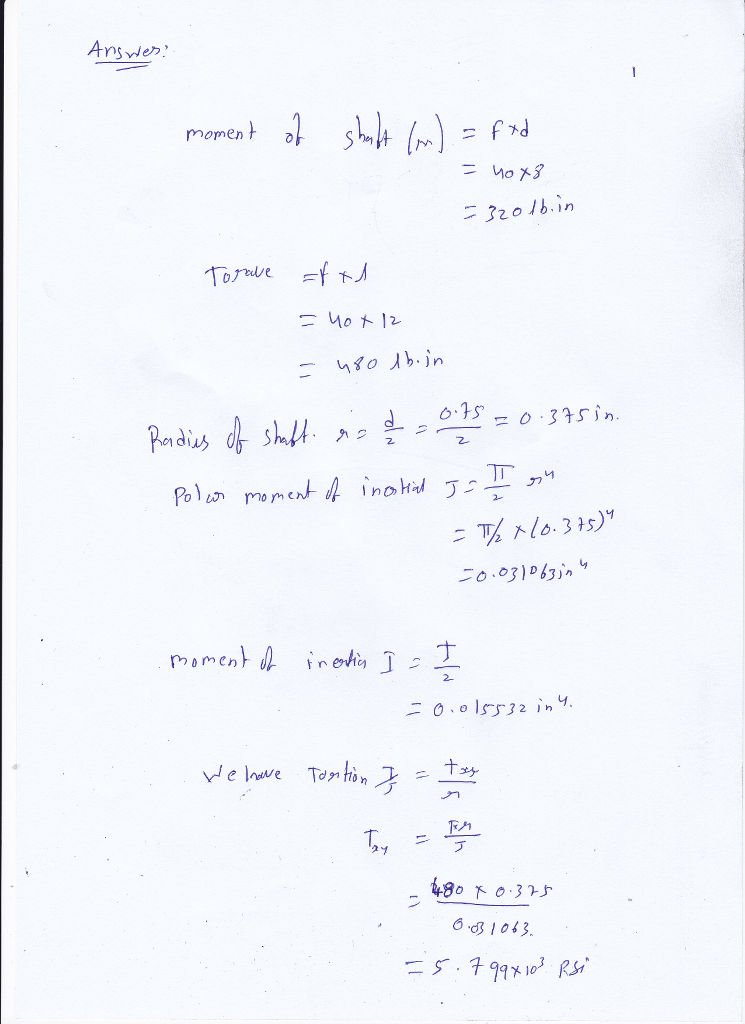 Answer:
1
moment of shaft (m) = f×d
= 40×8
= 320 lb.in
Torque = f × d
= 40 × 12
= 480 lb.in
Radius of shaft. r = d/2 = 0.75/2 = 0.375in.
Polar moment of inertial J = π/2 r⁴
= π/2 × (0.375)⁴
= 0.031063in⁴
moment of inertia I = J/2
= 0.015532 in⁴.
We have Tortion T/J = τxy/r
τxy = T×r/J
= 480 × 0.375
0.031063.
= 5.799×10³ Psi